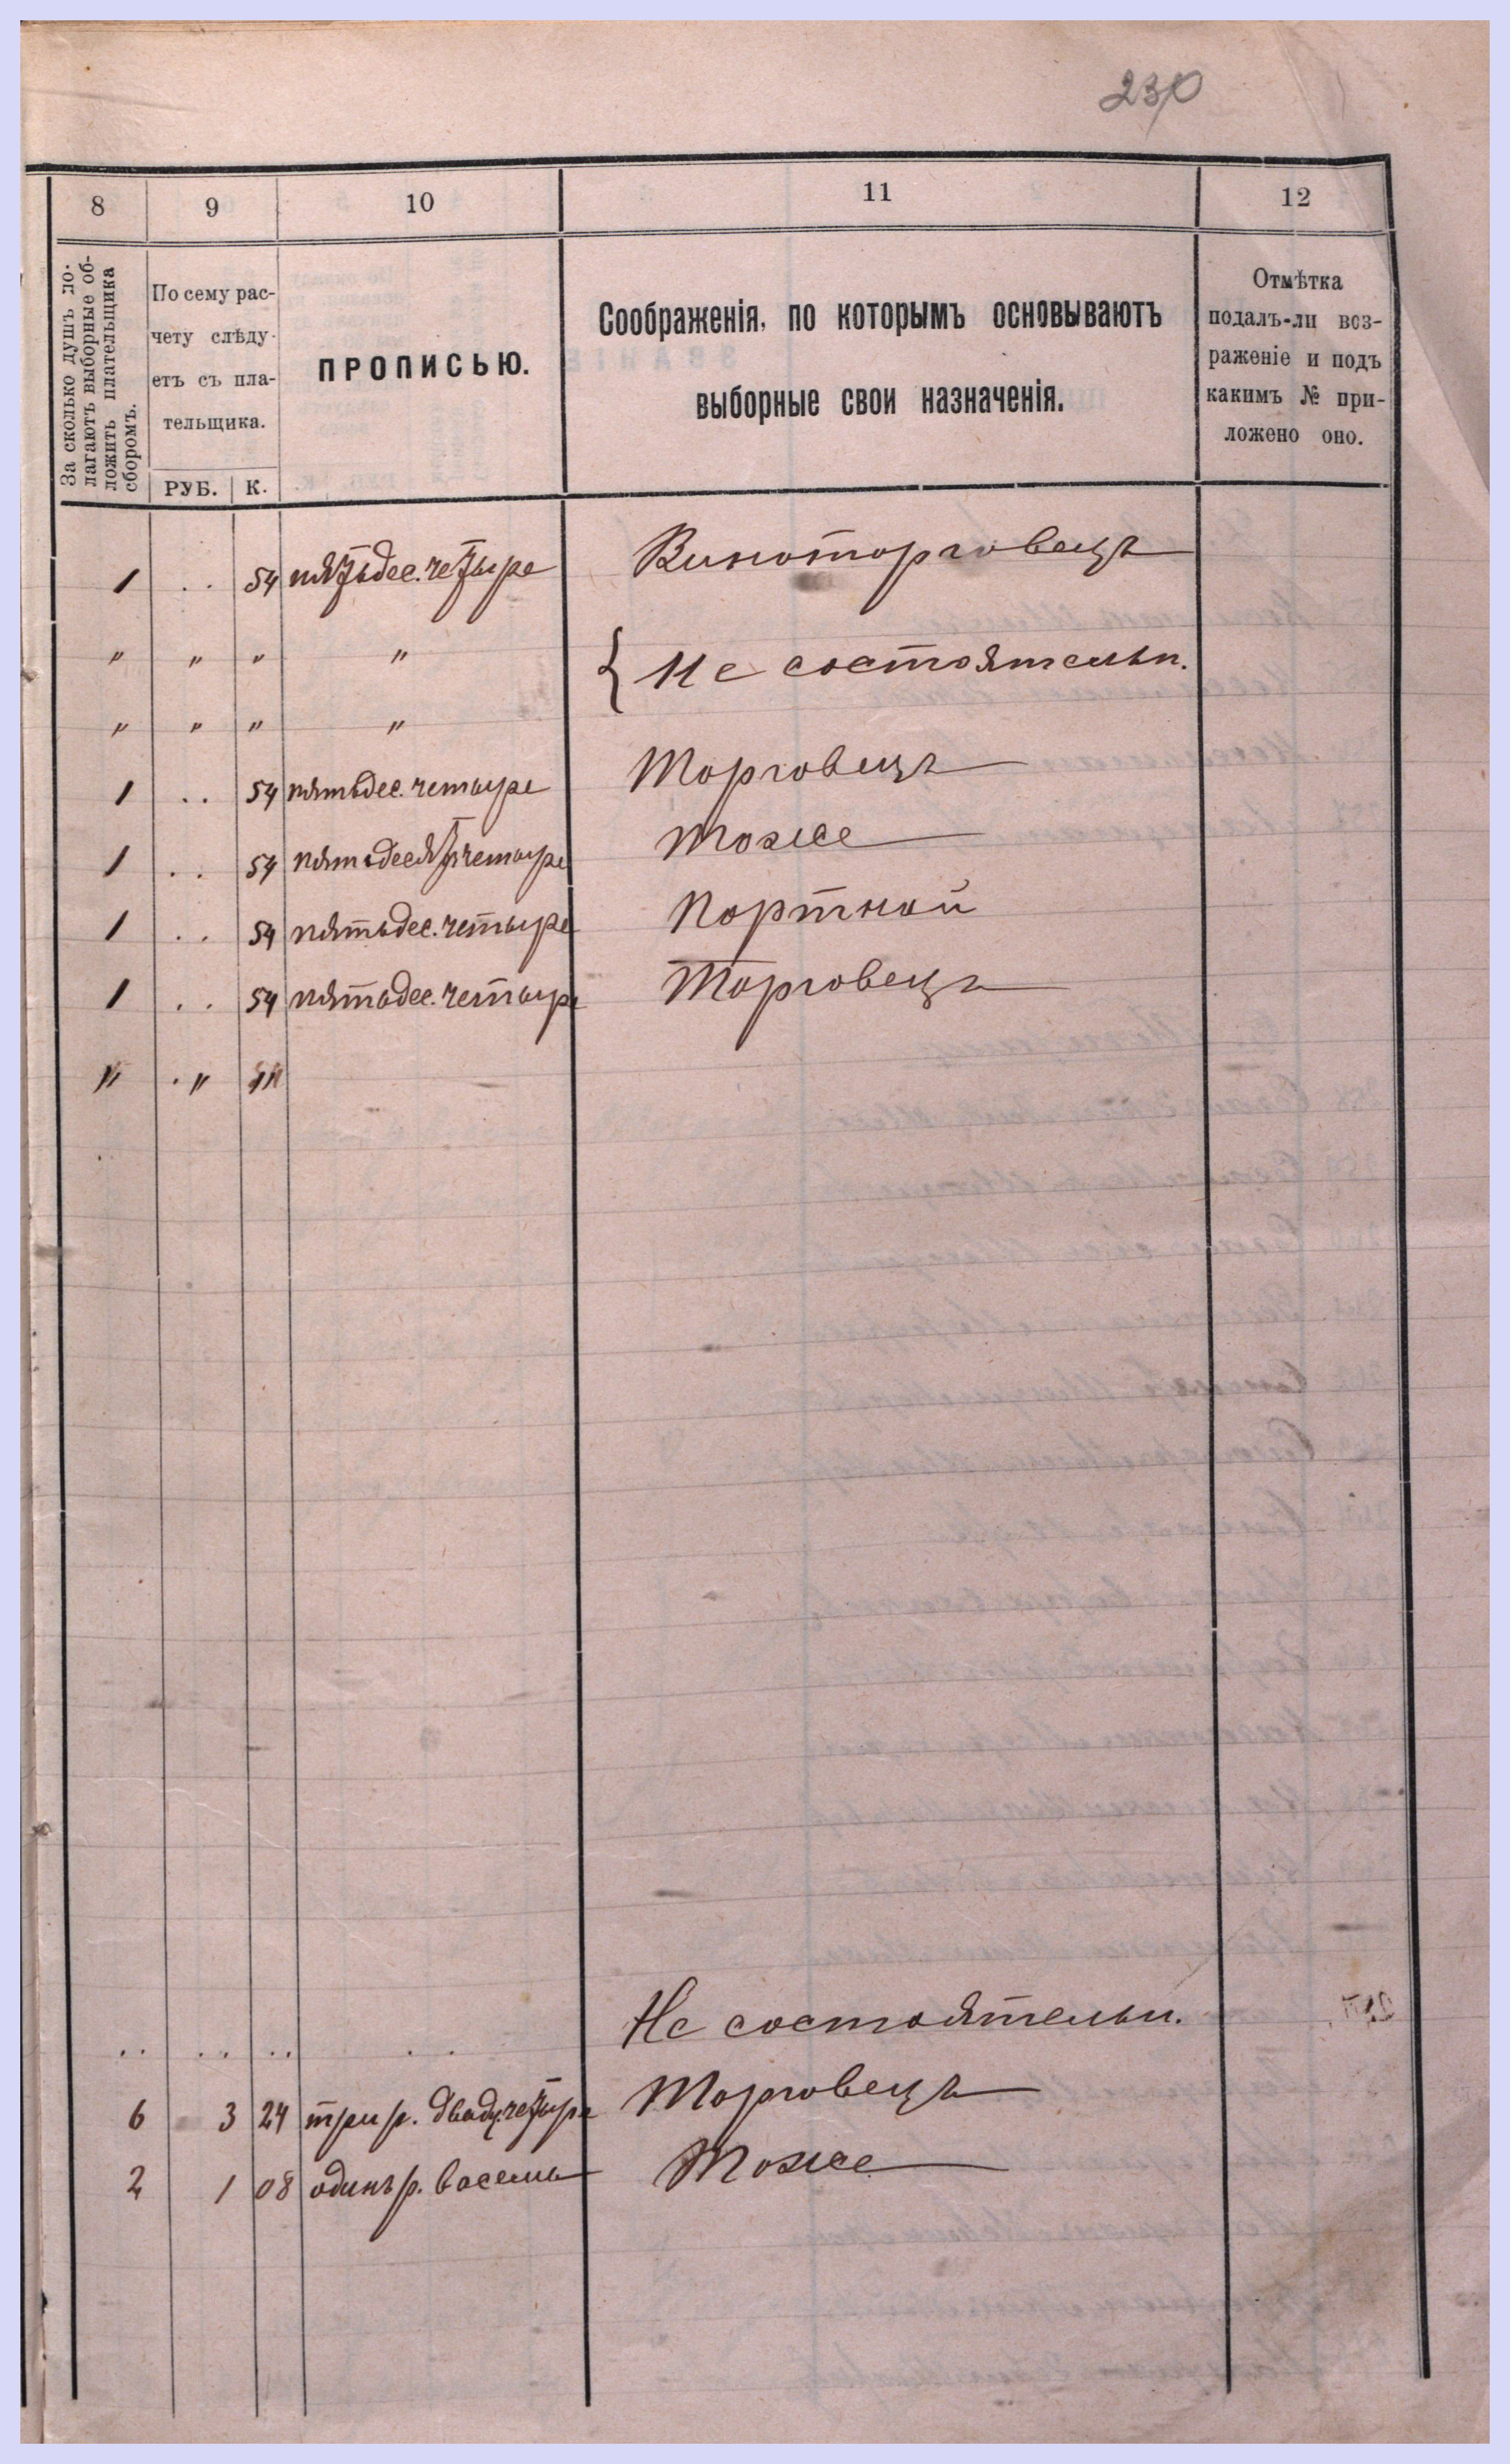 230
8 9 10 11 12
За сколько душъ по-
лагаютъ выборные об-
ложить плательщика
сборомъ.
По сему рас-
чету слѣду-
етъ съ пла-
тельщика.
РУБ. К.
ПРОПИСЬЮ.
Соображенія, по которымъ основываютъ
выборные свои назначенія.
Отмѣтка
подалъ-ли воз-
раженіе и подъ
какимъ № при-
ложено оно.
1 .. 54 пятьдес. четыре Виноторговецъ
" " " " { Не состоятельн.
" " " "
1 .. 54 пятьдес. четыре Торговецъ
1 .. 54 пятьдесят четыре Тоже
1 .. 54 пятьдес. четыре Портной
1 .. 54 пятьдес. четыре Торговецъ
" . "
.. .. .. .. Не состоятельн.
6 3 24 три р. двадц. четыре Торговецъ
2 1 08 одинъ р. восемь Тоже